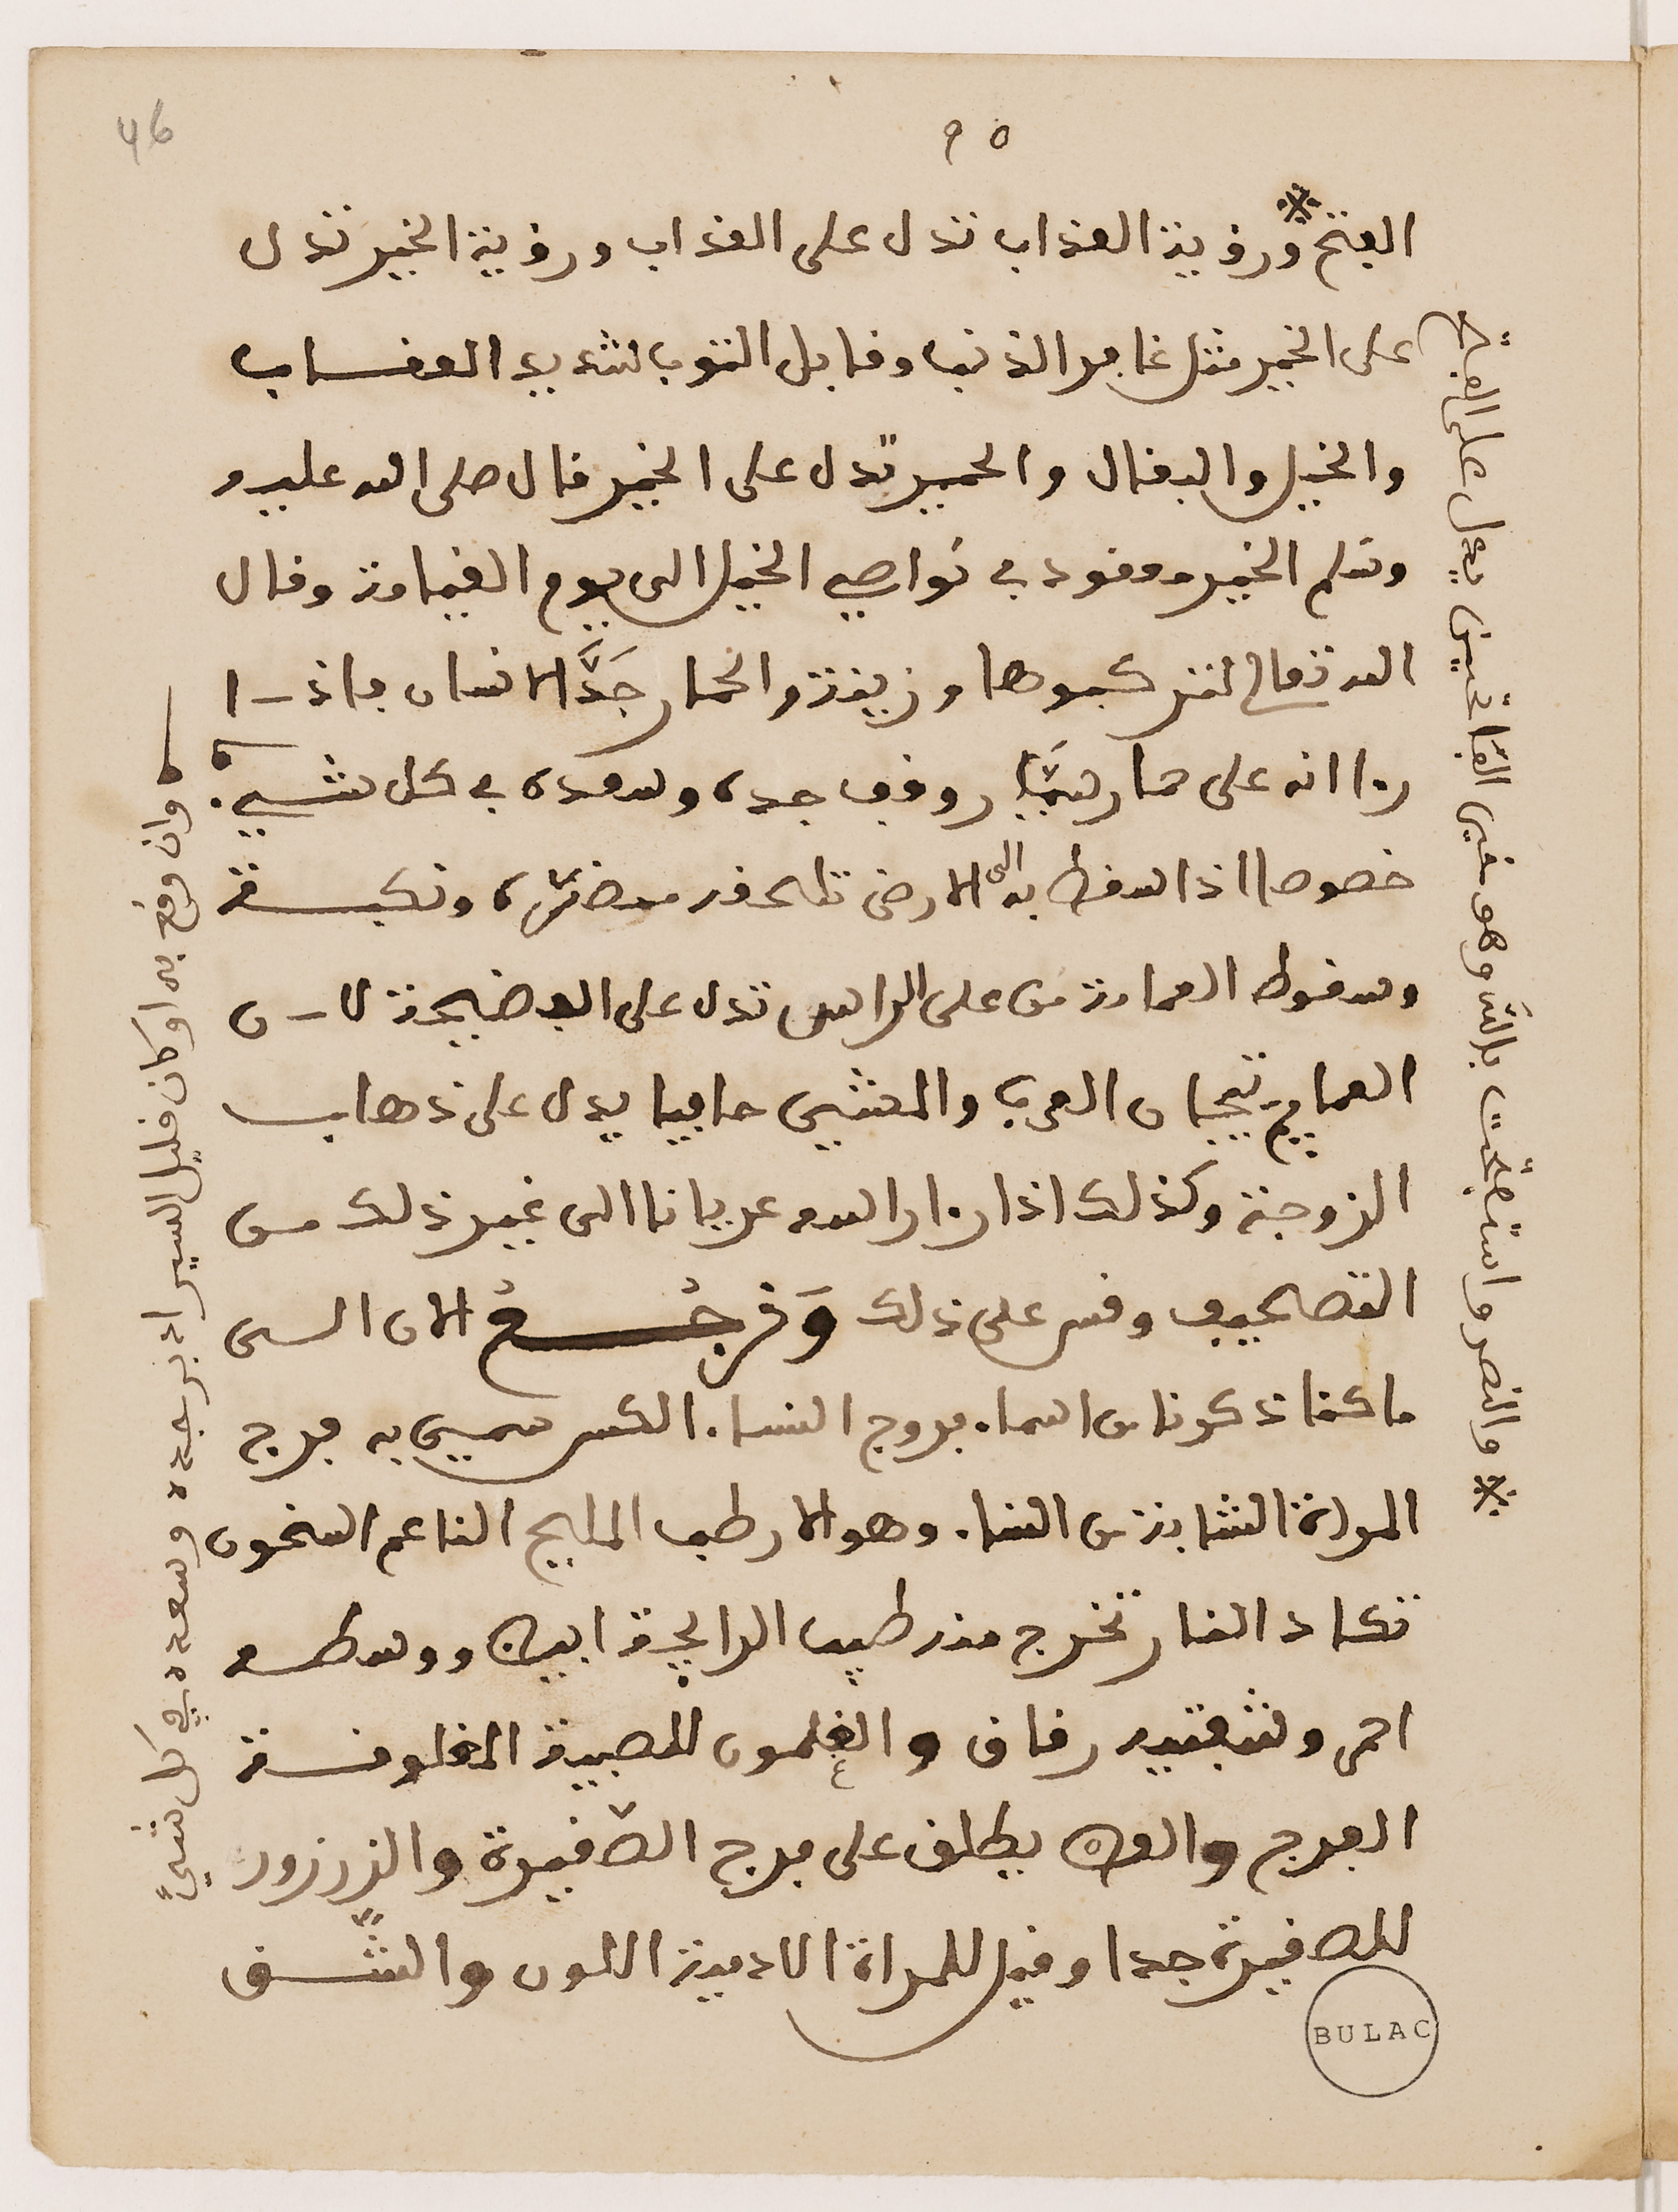 46
٩٥
الفتح ※ ورؤية العذاب تدل على العذاب ورؤية الخير تدل
على الخير مثل غافر الذنب وقابل التوب شديد العقاب
والخيل والبغال والحمير تدل على الخير قال صلى الله عليه و
وسلم الخير معقود في نواصي الخيل الى يوم القيامة وقال
الله تعالى لتركبوها وزينة والحمار جَدُّ الانسان فاذا
راا انه على حمار سَيَّار وقف جده وسعده في كل شيء
خصوصا اذا سقط به الى الارض فالحذر مضرة ونكبة
وسقوط العمامة من على الراس تدل على الفضيحة لان
العمايم تيجان العرب والمشي حافيا يدل على ذهاب
الزوجة وكذلك اذا راا راسه عريانا الى غير ذلك من
التصحيف وقس على ذلك وَنرجُعُ الان الى
ما كنا ذكرنا من اسماء فروج النساء الكس سمي به فرج
المراة الشابة من النساء وهو الارطب المليح الناعم السخون
تكاد النار تخرج منه طيب الرايحة ابيض ووسطه
احمر وشفتيه رقاق والغلمون للصبية المغلوقة
الفرج والعص يطلق على فرج الصغيرة والزرزور
للصغيرة جدا وقيل للمراة الادمية اللون والشق
على الفتح يدل على الفاتحين وهو خير الفاتحين بالله واستفتحت والنصر ※
وان وقع به او كان قليل السير ادبر جده وسعده في كل شيء
BULAC